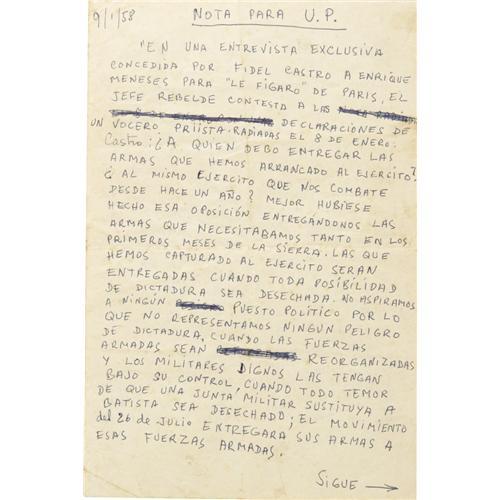 9/1/58 NOTA PARA U.P.
"EN UNA ENTREVISTA EXCLUSIVA
CONCEDIDA POR FIDEL CASTRO A ENRIQUE
MENESES PARA "LE FIGARO" DE PARIS, EL
JEFE REBELDE CONTESTA A LAS
DECLARACIONES DE
UN VOCERO PRIISTA. RADIADAS EL 8 DE ENERO:
Castro: ¿A QUIEN DEBO ENTREGAR LAS
ARMAS QUE HEMOS ARRANCADO AL EJERCITO?
¿ AL MISMO EJERCITO QUE NOS COMBATE
DESDE HACE UN AÑO? MEJOR HUBIESE
HECHO ESA OPOSICIÓN ENTREGÁNDONOS LAS
ARMAS QUE NECESITABAMOS TANTO EN LOS
PRIMEROS MESES DE LA SIERRA. LAS QUE
HEMOS CAPTURADO AL EJERCITO SERAN
ENTREGADAS CUANDO TODA POSIBILIDAD
DE DICTADURA SEA DESECHADA. NO ASPIRAMOS
A NINGÚN PUESTO POLÍTICO POR LO
QUE NO REPRESENTAMOS NINGÚN PELIGRO
DE DICTADURA. CUANDO LAS FUERZAS
ARMADAS SEAN REORGANIZADAS
Y LOS MILITARES DIGNOS LAS TENGAN
BAJO SU CONTROL, CUANDO TODO TEMOR
DE QUE UNA JUNTA MILITAR SUSTITUYA A
BATISTA SEA DESECHADO; EL MOVIMIENTO
del 26 de JULIO ENTREGARA SUS ARMAS A
ESAS FUERZAS ARMADAS.
SIGUE →